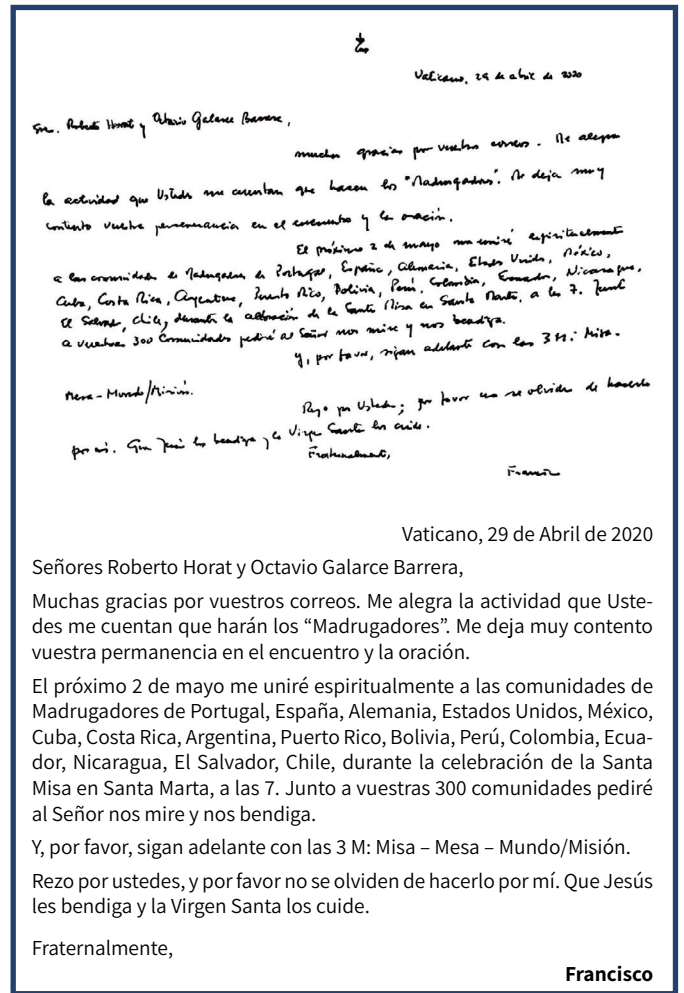 Vaticano, 29 de abril de 2020
Srs. Roberto Horat y Octavio Galarce Barrera,
muchas gracias por vuestros correos. Me alegra
la actividad que Ustedes me cuentan que hacen los "Madrugadores". Me deja muy
contento vuestra perseverancia en el encuentro y la oración.
El próximo 2 de mayo me uniré espiritualmente
a las comunidades de Madrugadores de Portugal, España, Alemania, Estados Unidos, México,
Cuba, Costa Rica, Argentina, Puerto Rico, Bolivia, Perú, Colombia, Ecuador, Nicaragua,
El Salvador, Chile, durante la celebración de la Santa Misa en Santa Marta, a las 7. Junto
a vuestras 300 Comunidades pediré al Señor nos mire y nos bendiga.
Y, por favor, sigan adelante con las 3 M: Misa-
Mesa-Mundo/Misión.
Rezo por Ustedes; por favor no se olviden de hacerlo
por mí. Que Jesús los bendiga y la Virgen Santa los cuide.
Fraternalmente,
Francisco
Vaticano, 29 de Abril de 2020
Señores Roberto Horat y Octavio Galarce Barrera,
Muchas gracias por vuestros correos. Me alegra la actividad que Uste-
des me cuentan que harán los “Madrugadores”. Me deja muy contento
vuestra permanencia en el encuentro y la oración.
El próximo 2 de mayo me uniré espiritualmente a las comunidades de
Madrugadores de Portugal, España, Alemania, Estados Unidos, México,
Cuba, Costa Rica, Argentina, Puerto Rico, Bolivia, Perú, Colombia, Ecua-
dor, Nicaragua, El Salvador, Chile, durante la celebración de la Santa
Misa en Santa Marta, a las 7. Junto a vuestras 300 comunidades pediré
al Señor nos mire y nos bendiga.
Y, por favor, sigan adelante con las 3 M: Misa – Mesa – Mundo/Misión.
Rezo por ustedes, y por favor no se olviden de hacerlo por mí. Que Jesús
les bendiga y la Virgen Santa los cuide.
Fraternalmente,
Francisco